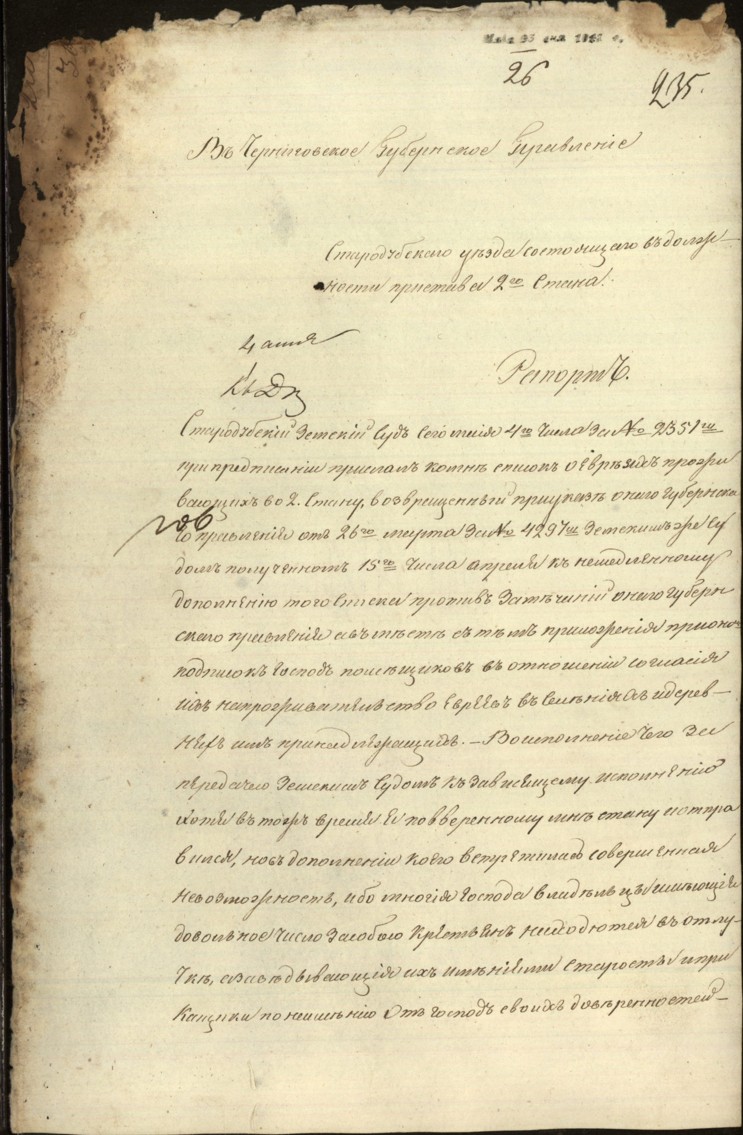 26
235.
Въ Черниговское Губернское Правленіе
Стародубскаго уѣзда состоящаго въ долж-
ности пристава 2го Стана.
4 мая
Рапортъ.
Стародубскій Земскій Судъ сего мая 4го числа за № 2351м
при предписаніи прислалъ комнѣ списокъ о Евреяхъ прожи
вающихъ во 2. Стану, возвращенный приуказѣ онаго Губернска
го правленія отъ 26го марта за № 4291м Земскимъ же Су
домъ полученномъ 15го числа апреля къ немедленному
дополненію того списка противъ замѣчаній онаго Губерн
скаго правленія авмѣстѣ стѣмъ приложенія приономъ
подписокъ Господъ помѣщиковъ въ отношеніи согласія
ихъ напрожывательство Евреевъ въ Селеніяхъ идерев-
няхъ имъ принадлежащихъ. — Воисполненіе чего за
передачею Земскимъ Судомъ къ зависящему исполненію
хотя въ тожъ время я поввѣренному мнѣ стану иотпра
вился, новъ дополненіи коего встретилась совершенная
невозможность, ибо многія Господа владѣльцы имѣющія
довольное число засобою крестьянъ находются въ отлу-
чкѣ, азавѣдывающія ихъ имѣніями Старосты ипри
кащики понеимѣнію отъ господъ своихъ довѣренностей-